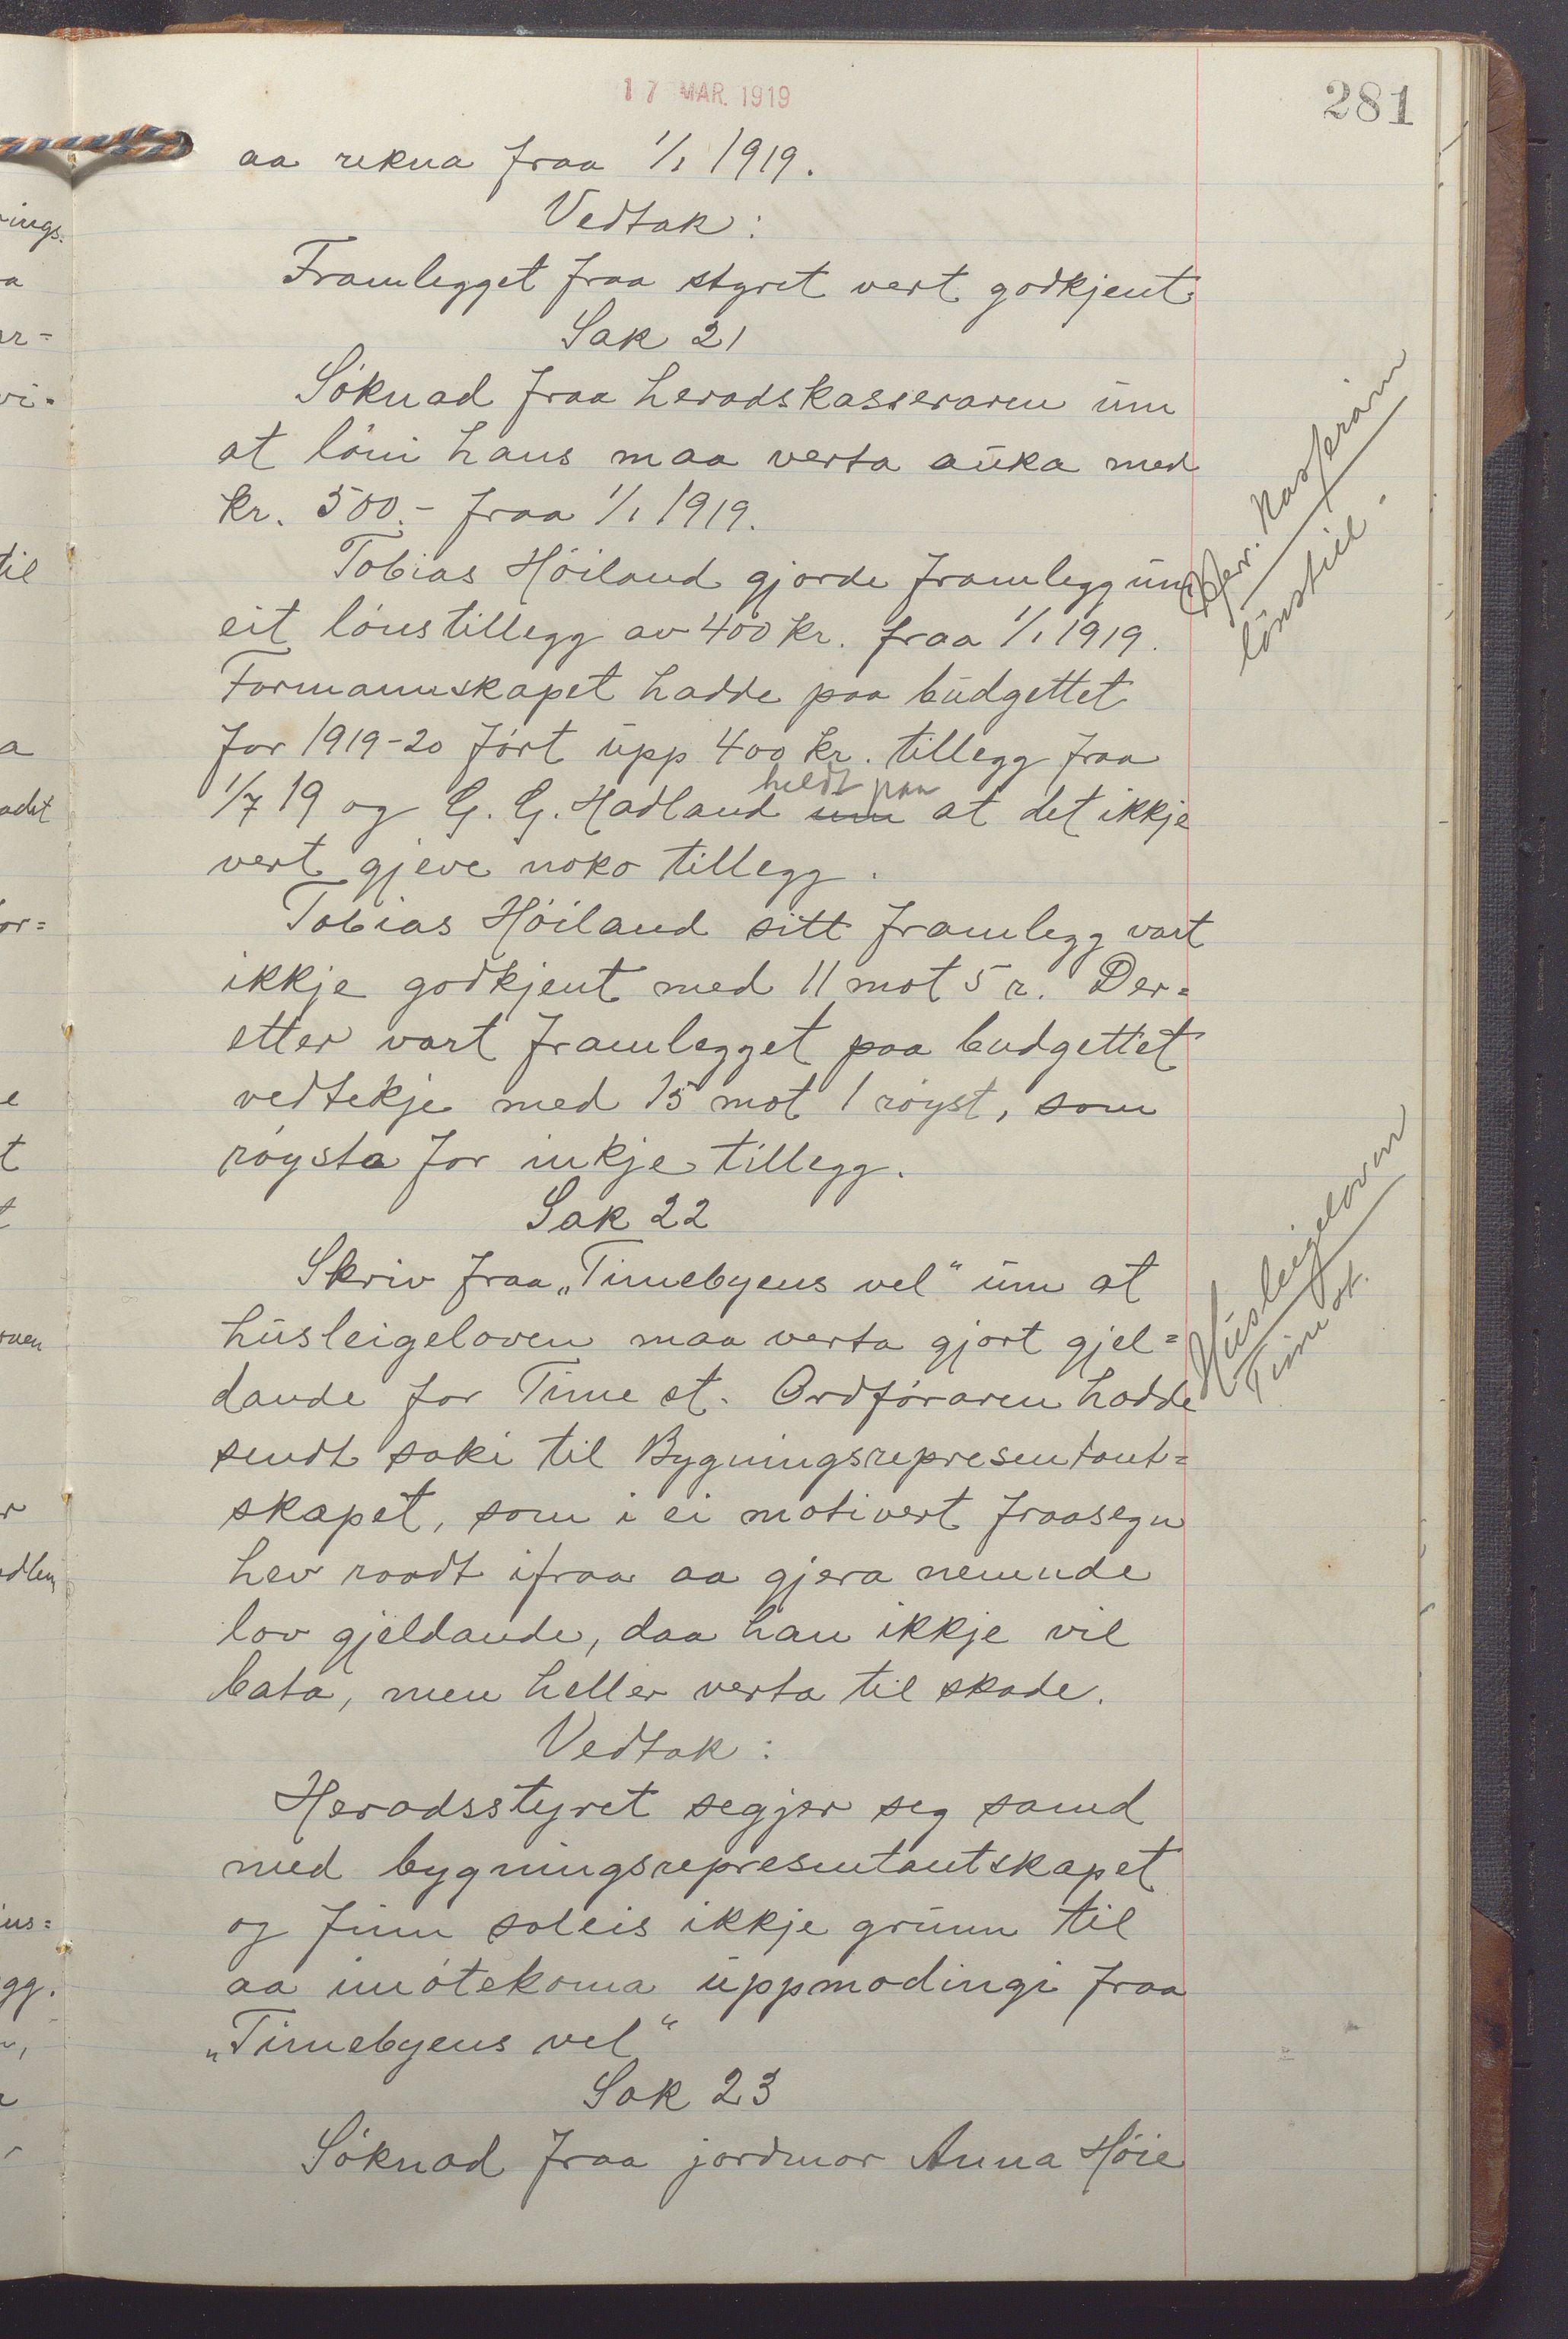 17 MAR. 1919
281
aa rekna fraa 1/1 1919.
Vedtak:
Framlegget fraa styret vert godkjent.
Sak 21
Søknad fraa heradskasseraren um
at løni hans maa verta auka med
kr. 500.- fraa 1/1 1919.
Tobias Høiland gjorde framlegg um
eit lønstillegg av 400 kr. fraa 1/1 1919.
Formannskapet hadde paa budgettet
for 1919-20 ført upp 400 kr. tillegg fraa
heldt paa
1/7 19 og G. G. Hadland um at det ikkje
vert gjeve noko tillegg.
Tobias Høiland sitt framlegg vart
ikkje godkjent med 11 mot 5 r. Der=
etter vart framlegget paa budgettet
vedtekje med 15 mot 1 røyst, som
røysta for inkje tillegg.
Sak 22
Skriv fraa „Timebyens vel“ um at
husleigeloven maa verta gjort gjel=
dande for Time st. Ordføraren hadde
sendt saki til Bygningsrepresentant=
skapet, som i ei motivert fraasegn
hev raadt ifraa aa gjera nemnde
lov gjeldande, daa han ikkje vil
bata, men heller verta til skade.
Vedtak:
Heradsstyret segjer seg samd
med bygningsrepresentantskapet
og finn soleis ikkje grunn til
aa imøtekoma uppmodingi fraa
„Timebyens vel“
Sak 23
Søknad fraa jordmor Anna Høie
Her. kasserain
lønstill.
Husleigeloven
Time st.
ings.
a
ar=
vi=
til
a
adet
or=
e
t
t
oven
r
us=
gg.